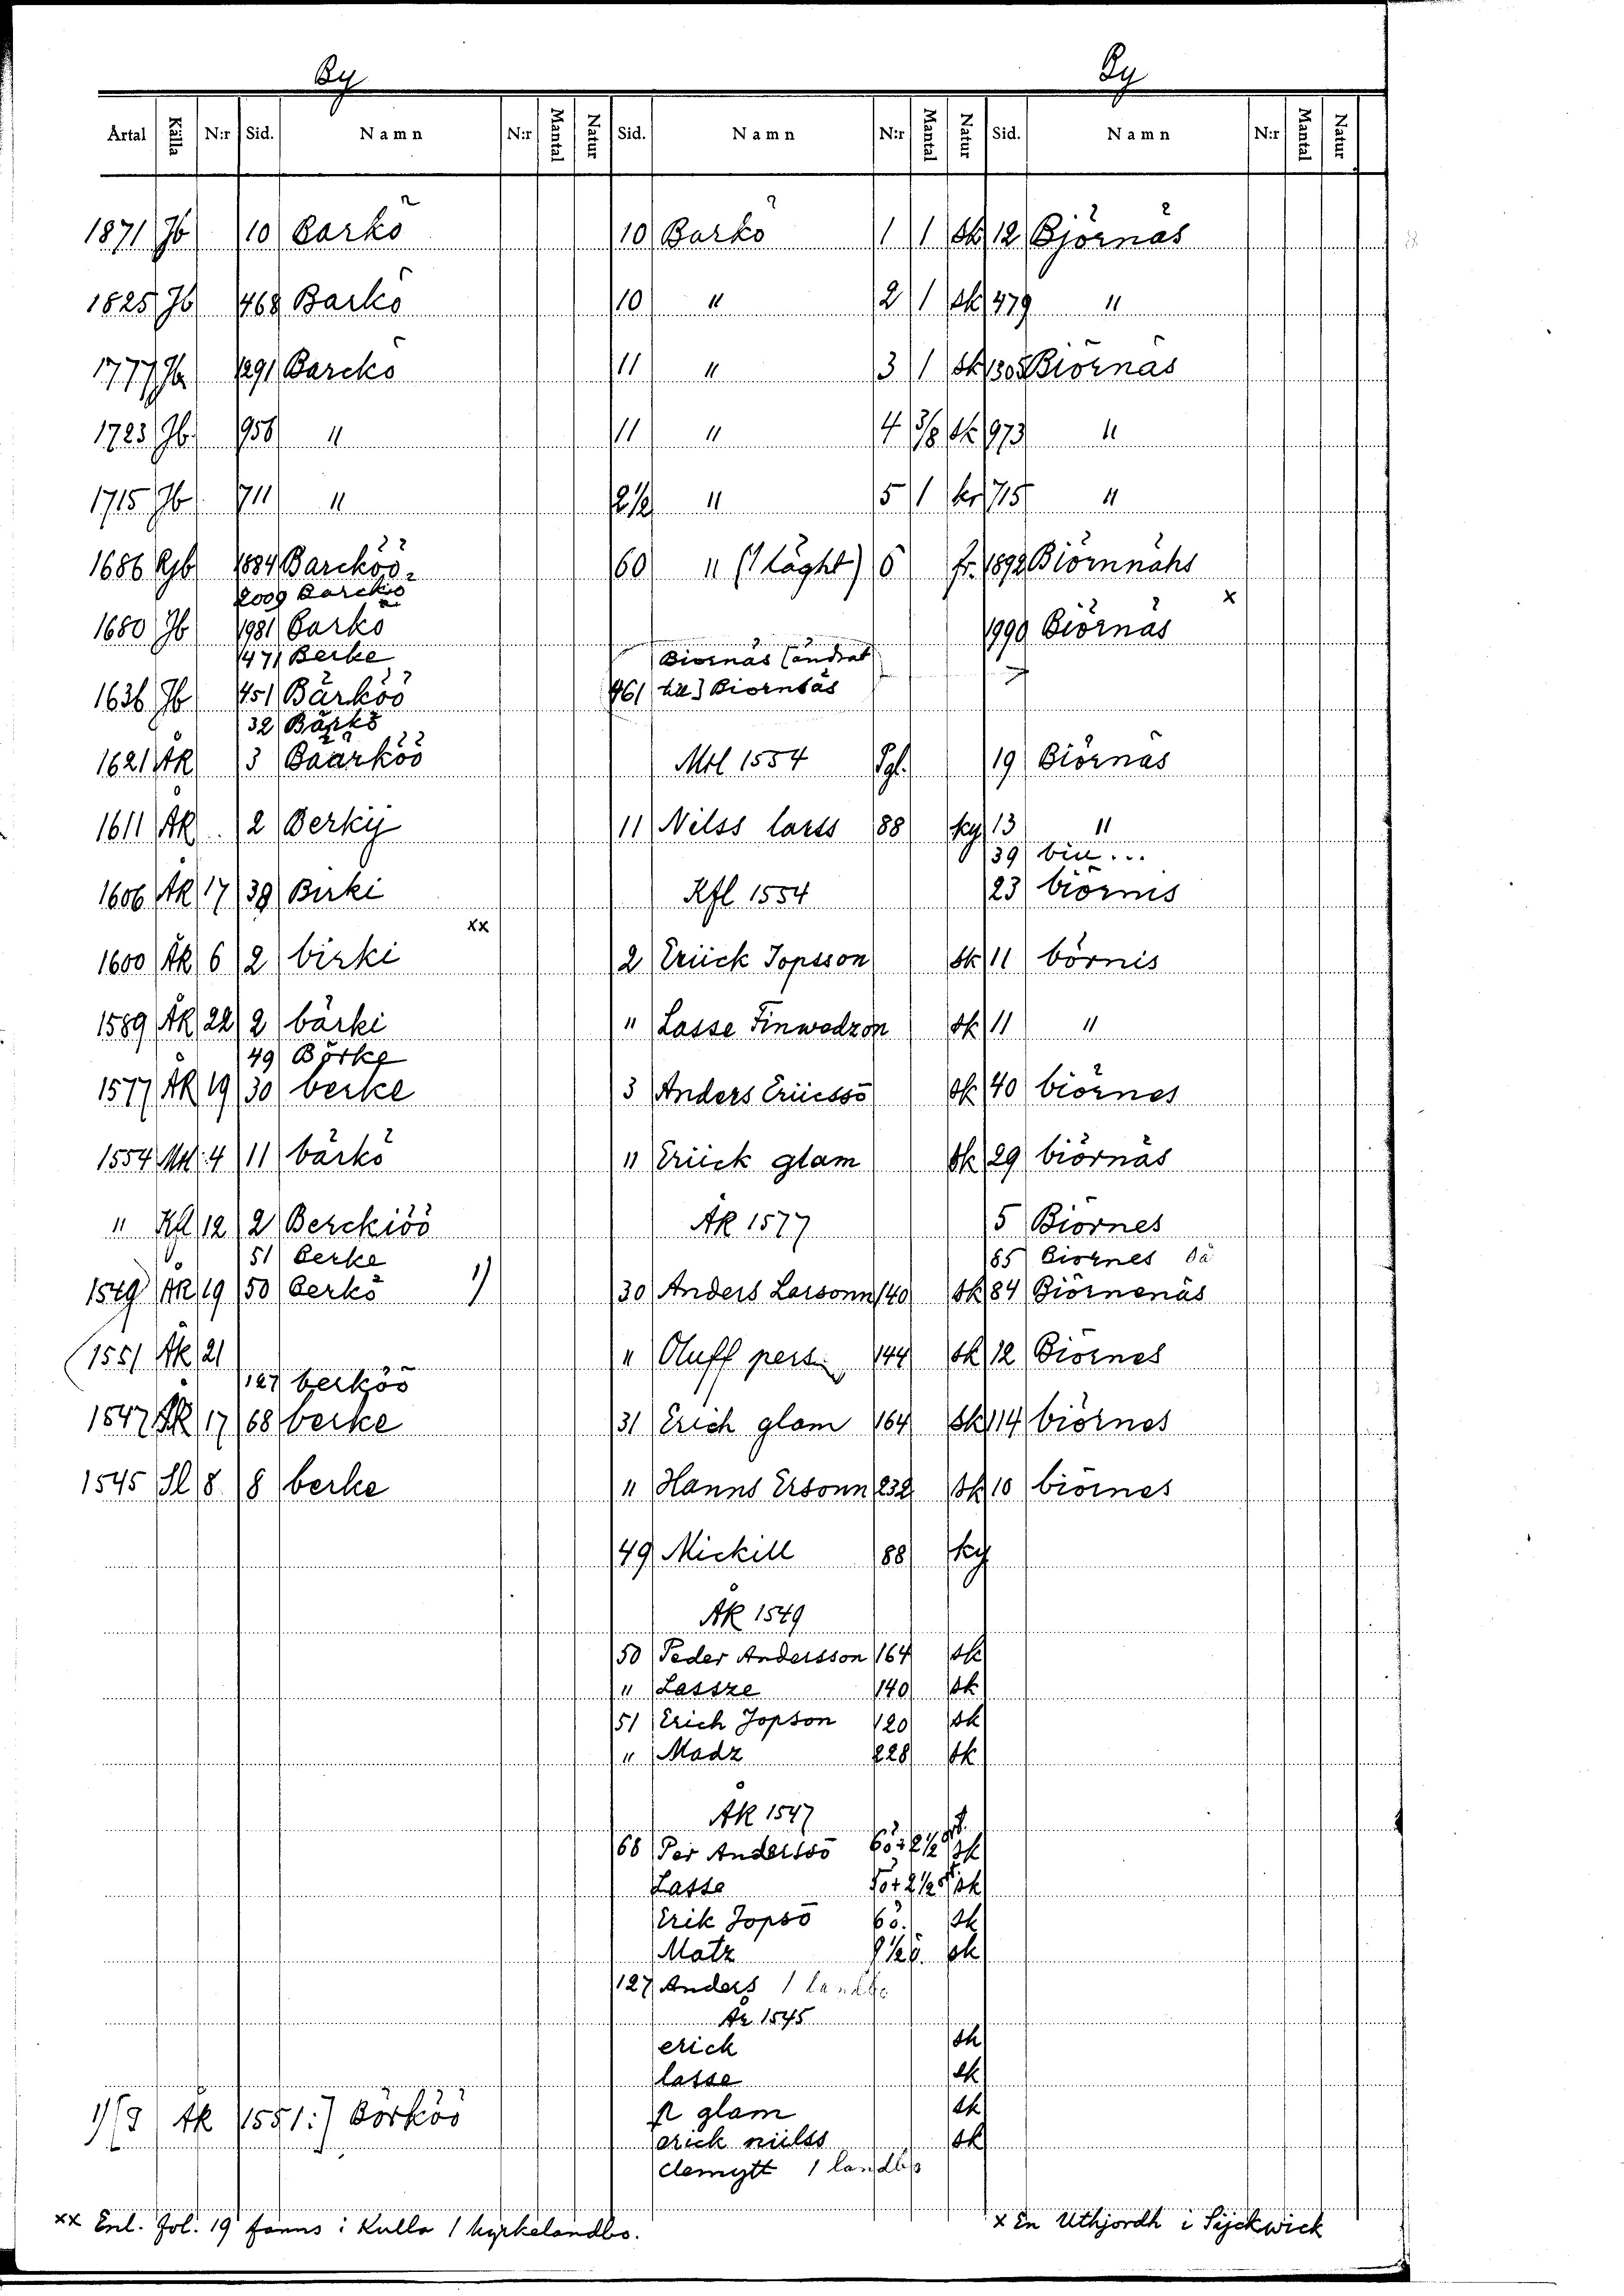 By By
Årtal Källa N:r Sid. Namn N:r Mantal Natur Sid. Namn N:r Mantal Natur Sid. Namn N:r Mantal Natur
1871 Jb 10 Barkö 10 Barkö 1 1 sk 12 Björnäs
1825 Jb 468 Barkö 10 " 2 1 sk 479 "
1777 Jb 1291 Barckö 11 " 3 1 sk 1305 Biörnäs
1723 Jb. 956 " 11 " 4 3/8 sk 973 "
1715 Jb 711 " 12½ " 5 1 kr 715 "
1686 Rjb 1884 Barcköö 60 " (1 läght) 6 fr. 1892 Biörnnähs
2009 Barckiö x
1680 Jb 1981 Barkö 1990 Biörnäs
471 Berke Biornäs [ändrat
1636 Jb 451 Bärköö 461 till] Biornbäs
32 Bärkö
1621 ÅR 3 Baarköö Mtl 1554 Pgl. 19 Biörnäs
1611 ÅR 2 Berkij 11 Nilss larss 88 ky 13 "
39 biu...
1606 ÅR 17 39 Birki Kfl 1554 23 biörnis
xx
1600 ÅR 6 2 birki 2 Eriick Jopsson sk 11 börnis
1589 ÅR 22 2 bärki " Lasse Finwedzon sk 11 "
49 Börke
1577 ÅR 19 30 berke 3 Anders Eriicssö sk 40 biörnes
1554 Mtl: 4 11 bärkö " Eriick glam sk 29 biörnäs
" Kfl 12 2 Berckiöö ÅR 1577 5 Biörnes
51 Berke 85 Biörnes
1549 ÅR 19 50 Berkö 1) 30 Anders Larsonn 140 sk 84 Biörnenäs
(1551 ÅR 21 " Oluff pers 144 sk 12 Biörnes
127 berköö
1547 ÅR 17 68 berke 31 Erich glam 164 sk 114 biörnes
1545 Sl 8 8 berke " Hanns Ersonn 232 sk 10 biörnes
49 Mickill 88 ky
ÅR 1549
50 Peder Andersson 164 sk
" Lassze 140 sk
51 Erich Jopson 120 sk
" Madz 228 sk
ÅR 1547
68 Per Anderssö 6ö+2½ sk
Lasse 5ö+2½ sk
Erik Jopsö 6ö. sk
Matz 9½ö. sk
127 Anders 1 landbo
År 1545
erich sk
lasse sk
1) [I ÅR 1551:] Börköö p glam sk
erick niilss sk
clemytt 1 landbo
xx Enl. fol. 19 fanns i Kulla 1 kyrkelandbo. x En Uthjordh i Sijckwick